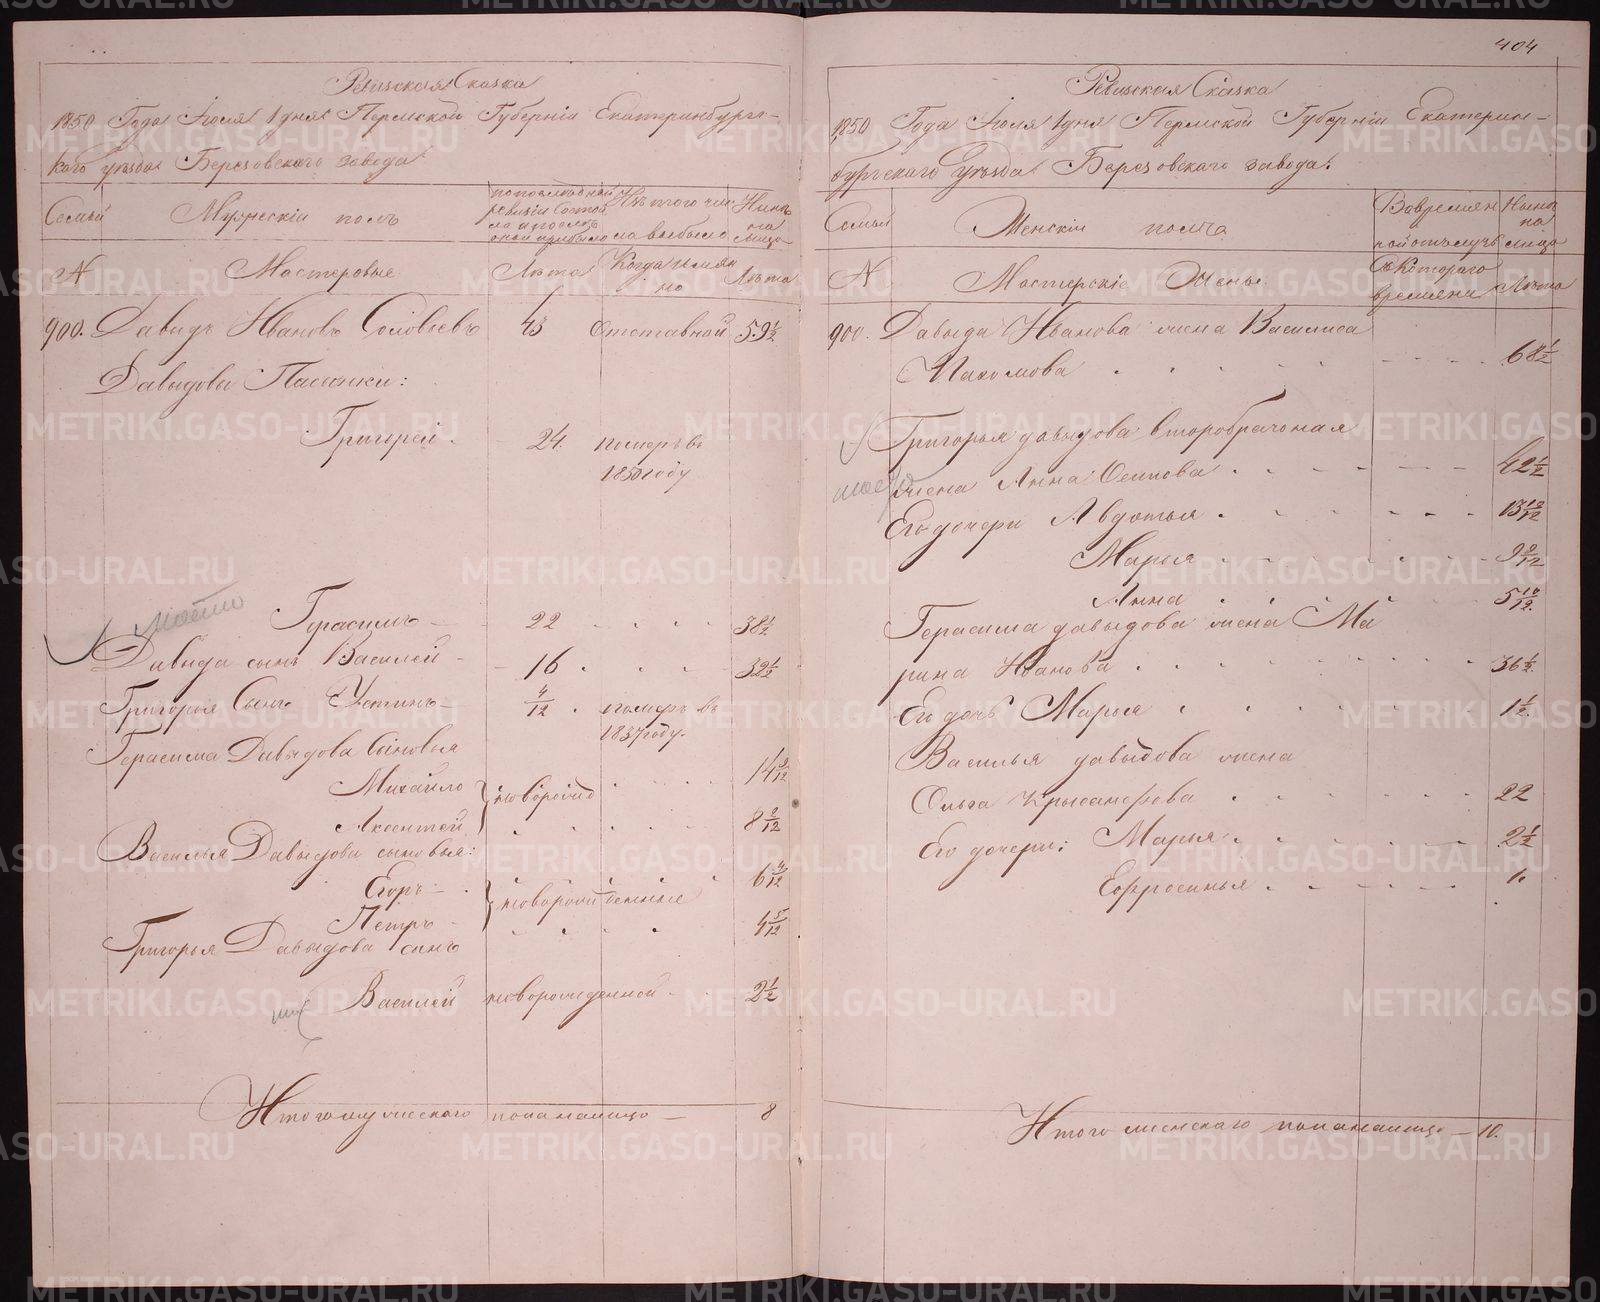 404
Ревизская Сказка
1850 Года Июля 1 дня Пермской Губернiи Екатеринбургс-
каго уезда Березовскаго завода
Семьи
Мужескiй полъ
По последней ревизiи состояло и после оной прибыло
Изъ того числа выбыло
Ныне на лицо
№
Мастеровые
Лета
Когда имянно
Лета
900. Давидъ Ивановъ Соловьевъ 43 Отставной 59½
Давыдовы Пасынки:
Григорей 24. померъ въ
1850 году
Герасимъ 22 38½
Давыда сынъ Василей 16 32½
Григорья Сынъ Устинъ 4/12 померъ въ
1837 году.
Герасима Давыдова Сыновья
Михайло новорожд 14 3/12
Аксентей 8 2/12
Василья Давыдова сыновья:
Егоръ новорожденные 6 4/12
Петръ 4 5/12
Григорья Давыдова сынъ
Василей новорожденной 2½
Итого мужескаго пола налицо 8
Ревизская Сказка
1850 Года Июля 1 дня Пермской Губернiи Екатерин-
бургскаго Уезда Березовскаго завода.
Семьи
Женскiй полъ
Во временной отлучке
Ныне на лицо
№
Мастерскiе Жены
Съ Котораго времяни
Лета
900. Давыда Иванова жена Василиса
Пахомова 68½
Григорья давыдова второбрачоная
жена Анна Осипова 42½
Его дочери Авдотья 13 10/12
Марья 9 9/12
Анна 5 10/12
Герасима давыдова жена Ма
рина Иванова 36½
Его дочь Марья 1½
Василья давыдова жена
Ольга Крысанфова 22
Его дочери: Марья 2½
Ефросинья 1.
Итого женскаго пола налицо 10.
METRIKI.GASO-URAL.RU